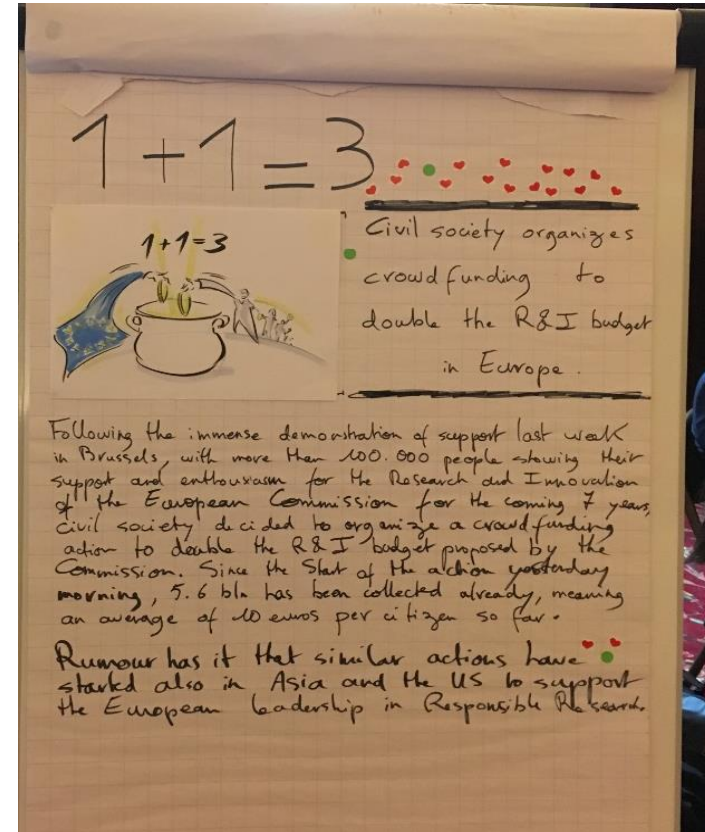 1+1=3
1+1=3
Civil society organizes
crowdfunding to
double the R&I budget
in Europe.
Following the immense demonstration of support last week
in Brussels, with more than 100.000 people showing their
support and enthousiasm for the Research and Innovation
of the European Commission for the coming 7 years,
civil society decided to organize a crowdfunding
action to double the R&I budget proposed by the
Commission. Since the Start of the action yesterday
morning, 5.6 bln has been collected already, meaning
an average of 10 euros per citizen so far.
Rumour has it that similar actions have
started also in Asia and the US to support
the European leadership in Responsible Research.